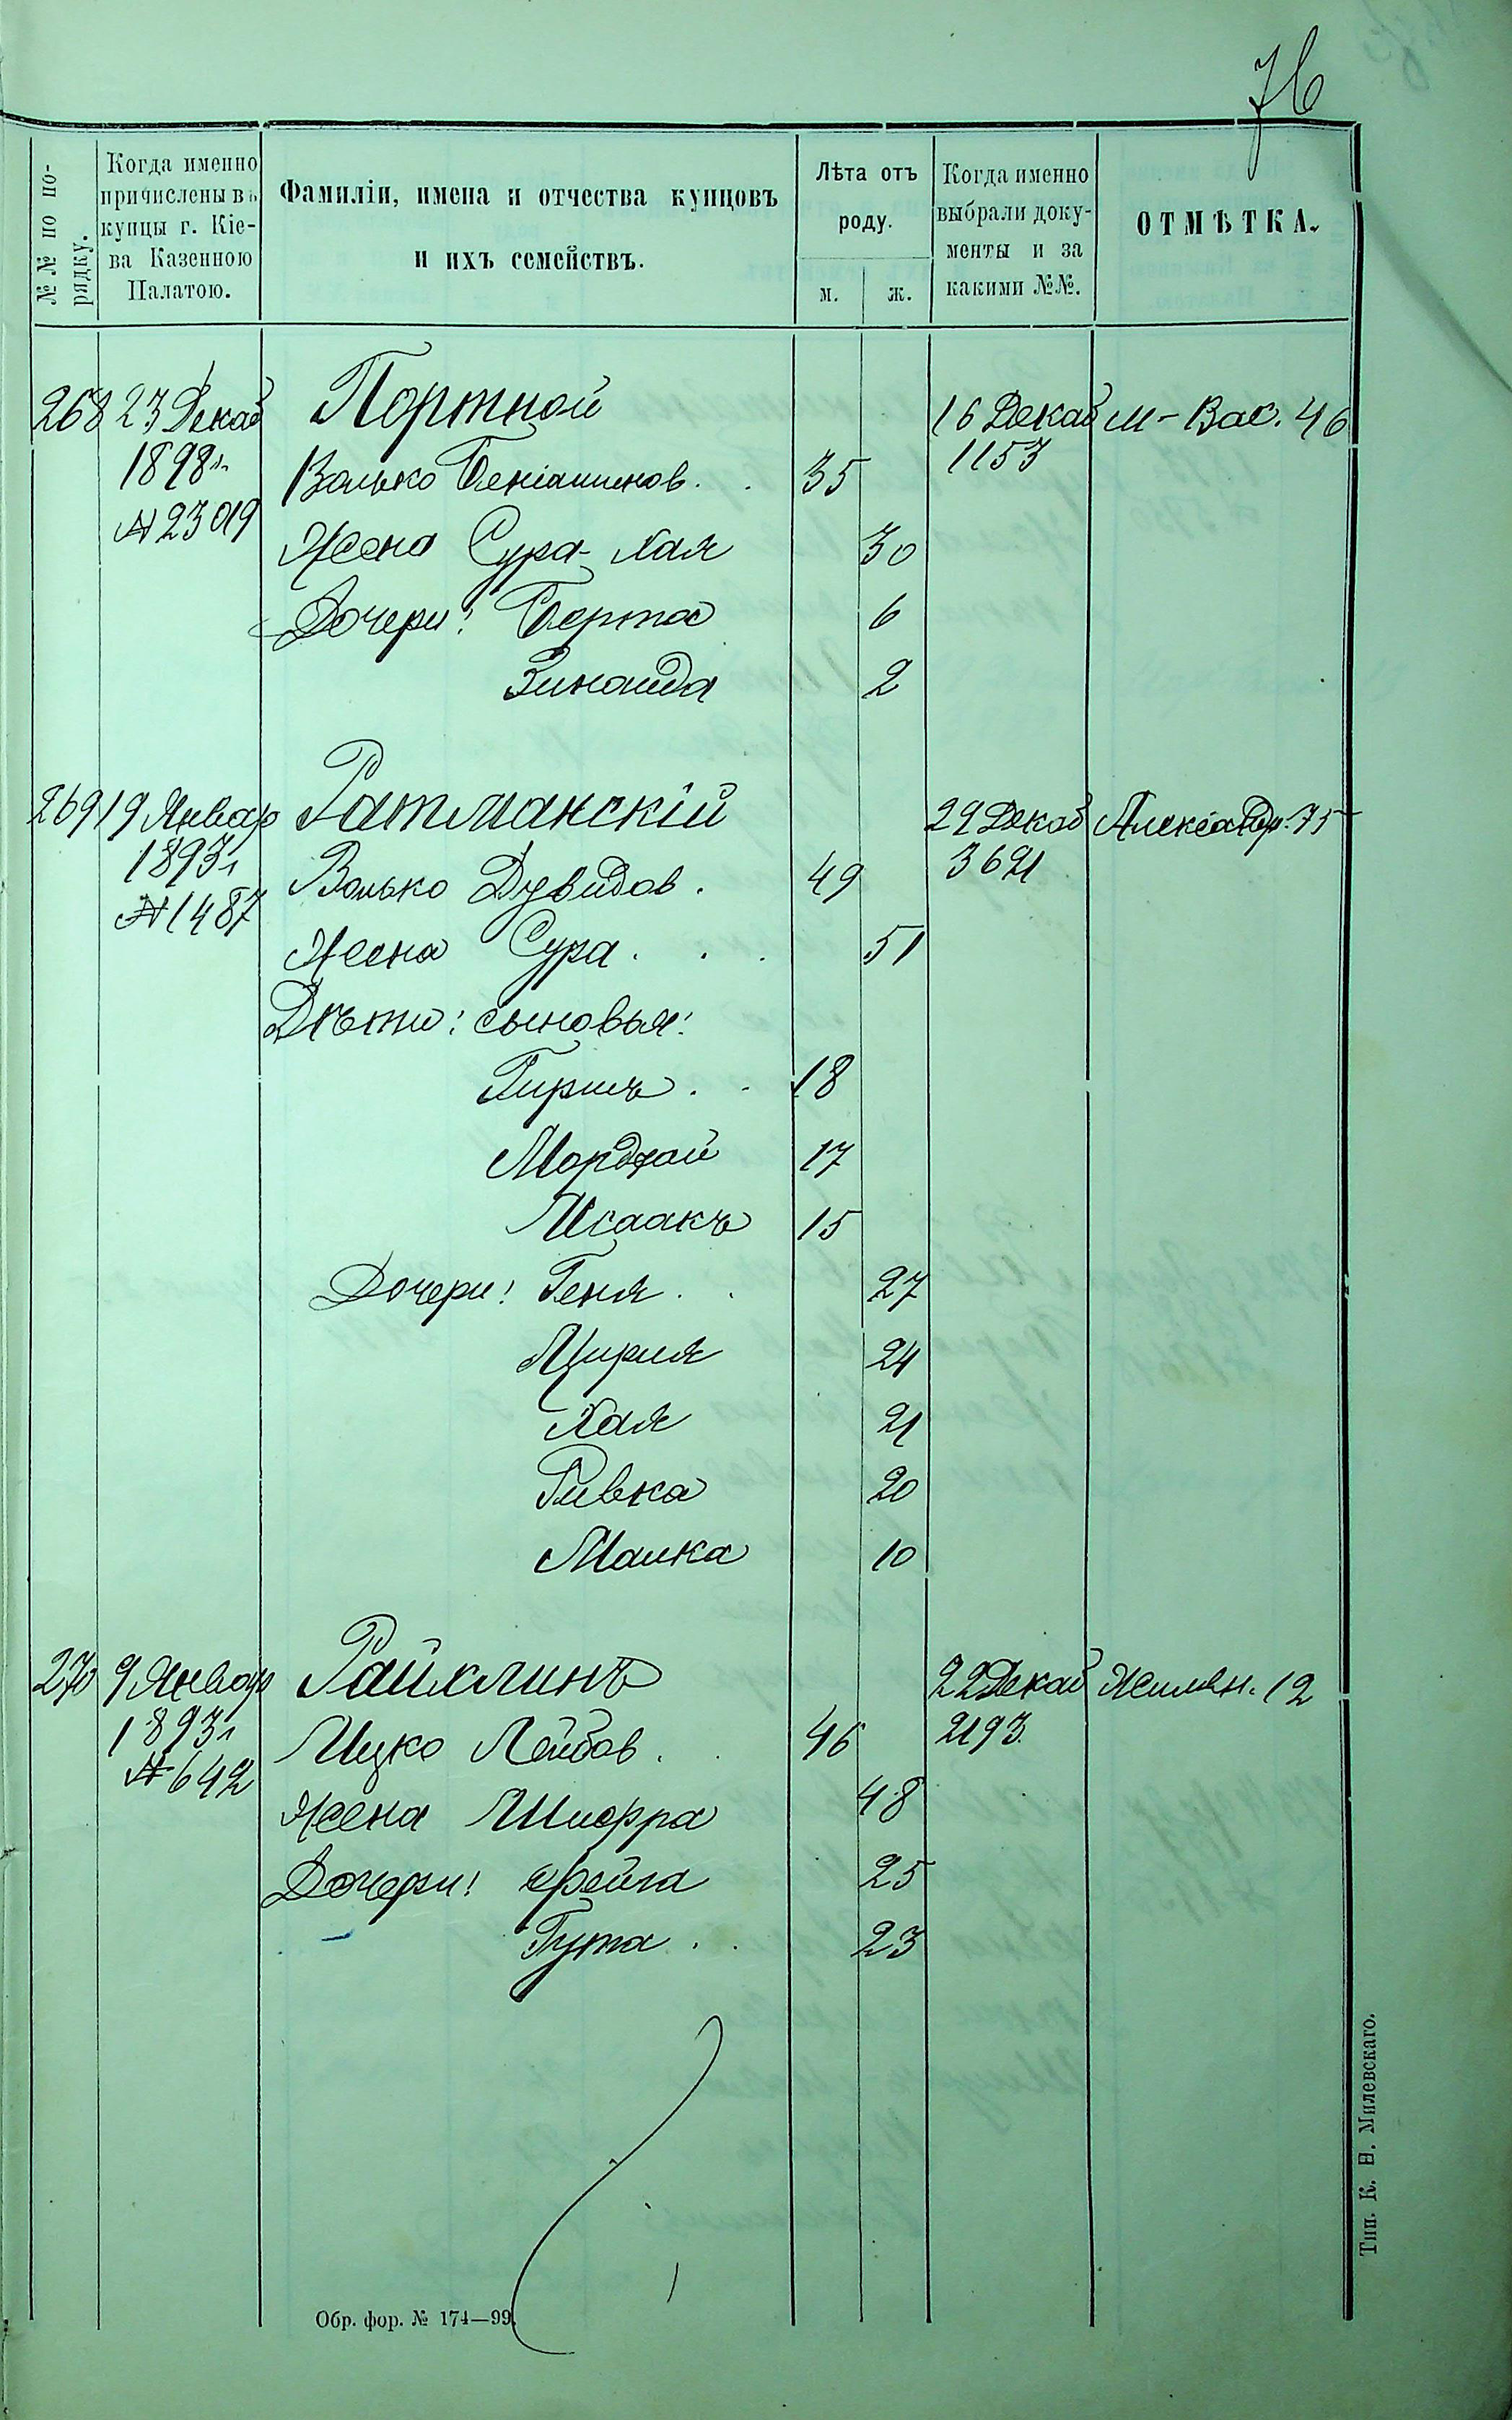 76
№№ по по-
рядку.
Когда именно
причислены въ
купцы г. Кіе-
ва Казенною
Палатою.
Фамиліи, имена и отчества купцовъ
и ихъ семействъ.
Лѣта отъ
роду.
м. ж.
Когда именно
выбрали доку-
менты и за
какими №№.
ОТМѢТКА.
268 23 Декаб Портной 16 Декаб М-Вас. 46
1898 г. Волько Беніаминов. 35 1153
№ 23019 Жена Сура-Хая 30
Дочери: Берта 6
Зинаида 2
269 19 Январ Ратманскій 29 Декаб Александр. 75
1893 г Волько Дувидов. 49 3621
№ 1487 Жена Сура. 51
Дѣти: сыновья:
Гиршъ 18
Мордхай 17
Исаакъ 15
Дочери: Геня 27
Цирля 24
Хая 21
Ривка 20
Малка 10
270 9 Январ Райхлинъ 22 Декаб Жилян. 12
1893 г Ицко Лейбов 46 2193.
№ 642 Жена Шифра 48
Дочери: Фейга 25
Гута 23
Обр. фор. № 174—99.
Тип. К. Н. Милевскаго.